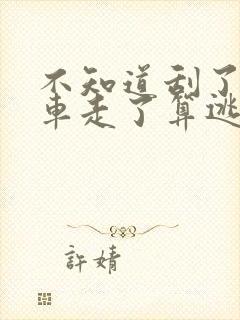 不知道刮了
車走了算逃
許婧